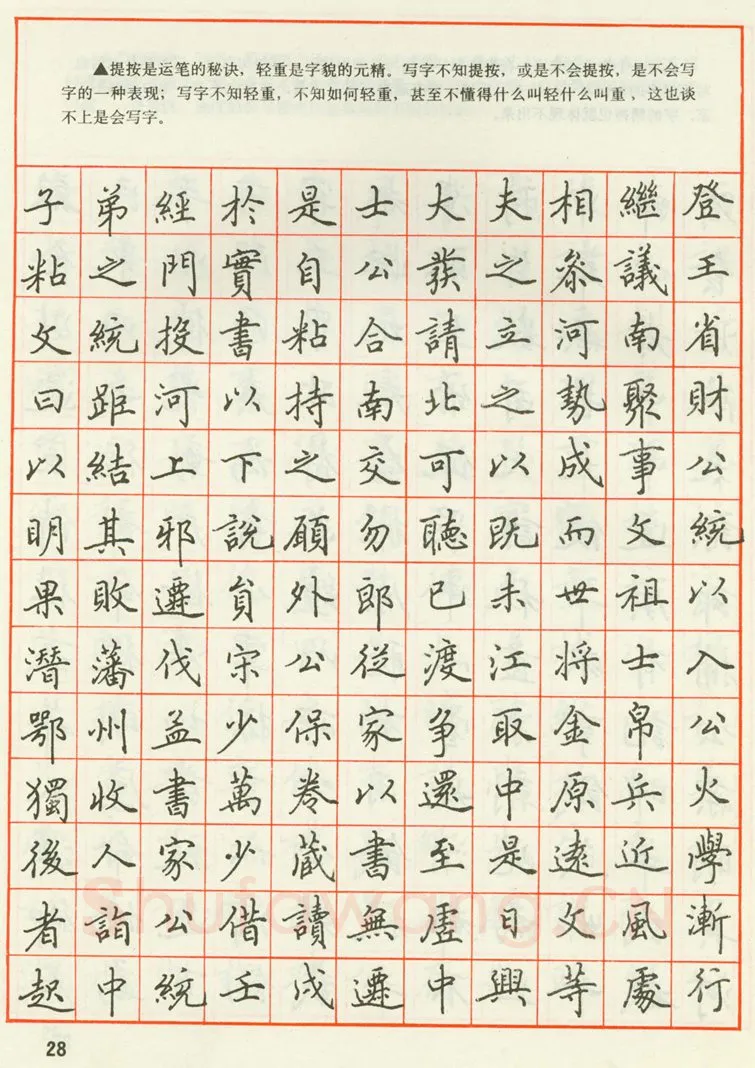 ▲提按是运笔的秘诀，轻重是字貌的元精。写字不知提按，或是不会提按，是不会写
字的一种表现；写字不知轻重，不知如何轻重，甚至不懂得什么叫轻什么叫重，这也谈
不上是会写字。
子弟經於是士大夫相繼登
粘之門實自公發之叅議王
文統投書粘合請立河南省
曰距河以持南北之勢聚財
以結上下之交可以成事公
明其邪說願勿聽既而文統
果敗遷員外郎已未世祖以
潛藩伐宋公從渡江將士入
鄂州益少保家争取金帛公
獨收書萬卷以還中原兵火
後人家少藏書至是遠近學
者詣公借讀無虛日文風漸
起中統壬戌遷中興等處行
Shufawang.cn
28